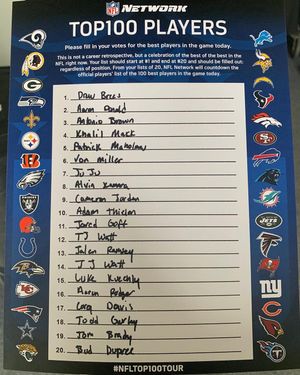 NFL NETWORK
TOP100 PLAYERS
Please fill in your votes for the best players in the game today.
This is not a career retrospective, but a celebration of the best of the best in the
NFL right now. Your list should start at #1 and end at #20 and should be filled out
regardless of position. From your lists of 20, NFL Network will countdown the
official players' list of the 100 best players in the game today.
1. Drew Brees
2. Aaron Donald
3. Antonio Brown
4. Khalil Mack
5. Patrick Mahomes
6. Von Miller
7. Ju Ju
8. Alvin Kamara
9. Cameron Jordan
10. Adam Thielen
11. Jared Goff
12. TJ Watt
13. Jalen Ramsey
14. J J Watt
15. Luke Kuechly
16. Aaron Rodger
17. Davis
18. Todd Gurley
19. Tom Brady
20. Bud Dupree
#NFLTOP100TOUR